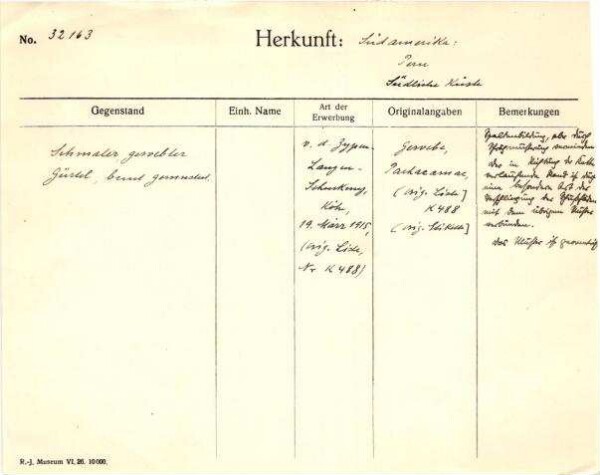 No. 32163
Herkunft: Südamerika:
Peru
Südliche Küste
Gegenstand
Einh. Name
Art der Erwerbung
Originalangaben
Bemerkungen
Schmaler gewebter
Gürtel, bunt gemustert.
v. d. Zypen-
Langen-
Schenkung,
Köln,
19. März 1915,
(orig. Liste,
Nr K 488)
Gewebe,
Pachacamac,
(orig. Liste]
K 488
[orig. Etikette]
Spaltenbildung, aber durch
vermieden
der in Richtung der Kette
verlaufende Rand ist durch
eine besondere Art der
der Schußfäden
mit dem übrigen Muster
verbunden.
Das Muster ist geometrisch
R.-J. Museum VI. 26. 10000.